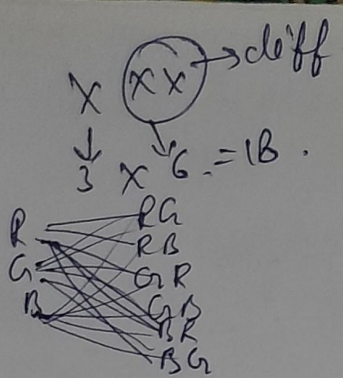 X XX → diff
↓
3 X 6 = 18.
R RG
RB
G GR
GB
B BR
BG